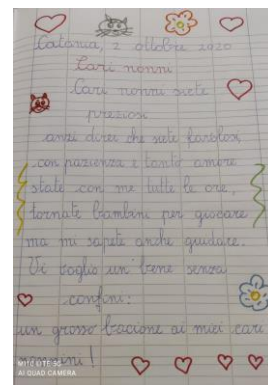 Catania, 2 ottobre 2020
Cari nonni
Cari nonni siete
preziosi
anzi direi che siete favolosi
con pazienza e tanto amore
state con me tutte le ore,
tornate bambini per giocare
ma mi sapete anche guidare.
Vi voglio un bene senza
confini:
un grosso bacione ai miei cari
nonnini!
MI 10 LITE 5G
AI QUAD CAMERA